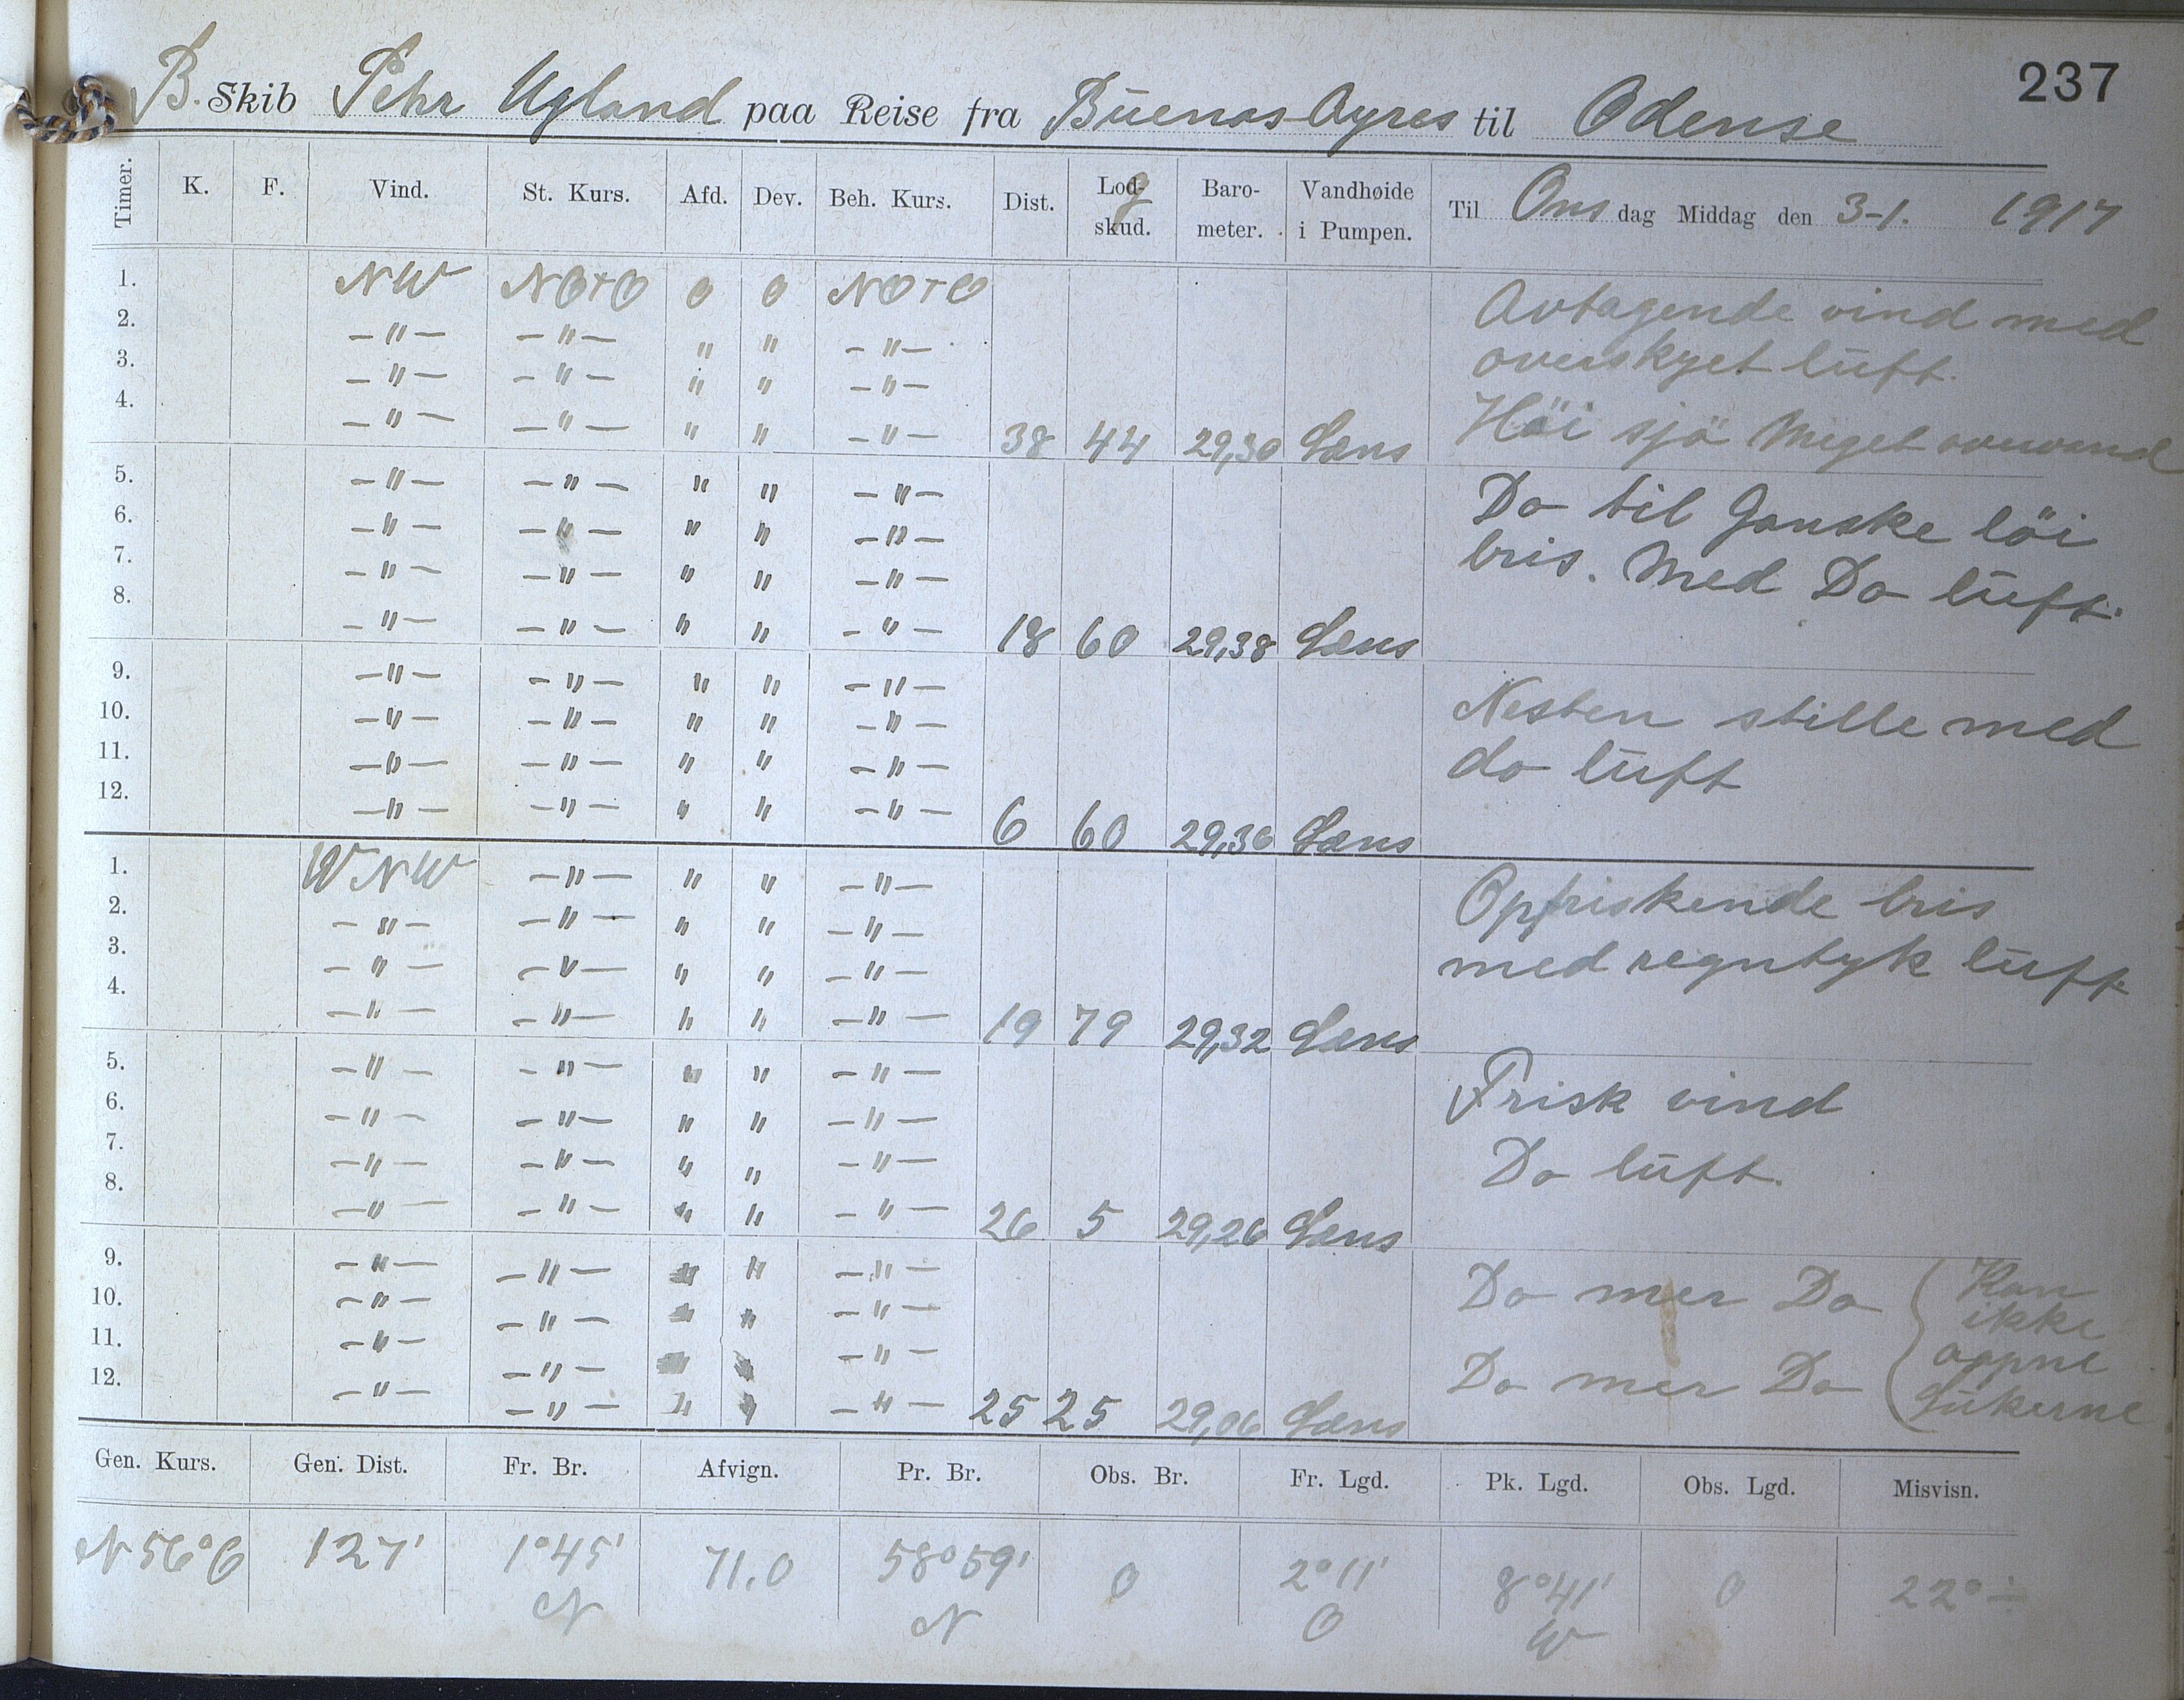 237
B. Skib Pehr Ugland paa Reise fra Buenos Ayres til Odense
Timer. K. F. Vind. St. Kurs. Afd. Dev. Beh. Kurs. Dist. Log- skud. Baro- meter. Vandhøide i Pumpen. Til Ons dag Middag den 3-1. 1917
1. NW NOtO 0 0 NOtO
Avtagende vind med
2. -"- -"- " " -"-
overskyet luft.
3. -"- -"- " " -"-
4. -"- -"- " " -"- 38 44 29,30 Læns Höi sjö Meget overvand
5. -"- -"- " " -"-
Do til Ganske löi
6. -"- -"- " " -"-
bris. Med Do luft.
7. -"- -"- " " -"-
8. -"- -"- " " -"- 18 60 29,38 Læns
9. -"- -"- " " -"-
Nesten stille med
10. -"- -"- " " -"-
do luft
11. -"- -"- " " -"-
12. -"- -"- " " -"- 6 60 29,36 Læns
1. WNW -"- " " -"-
Opfriskende bris
2. -"- -"- " " -"-
med regntyk luft.
3. -"- -"- " " -"-
4. -"- -"- " " -"- 19 79 29,32 Læns
5. -"- -"- " " -"-
Frisk vind
6. -"- -"- " " -"-
Do luft.
7. -"- -"- " " -"-
8. -"- -"- " " -"- 26 5 29,26 Læns
9. -"- -"- " " -"-
Do mer Do
Kan
10. -"- -"- " " -"-
ikke
11. -"- -"- " " -"-
Do mer Do
aapne
12. -"- -"- " " -"- 25 25 29,06 Læns
Lukerne
Gen. Kurs. Gen. Dist. Fr. Br. Afvign. Pr. Br. Obs. Br. Fr. Lgd. Pk. Lgd. Obs. Lgd. Misvisn.
N56°O 127' 1°45' 71,0 58°59' 0 2°11' 8°41' 0 22° ÷
N N O W